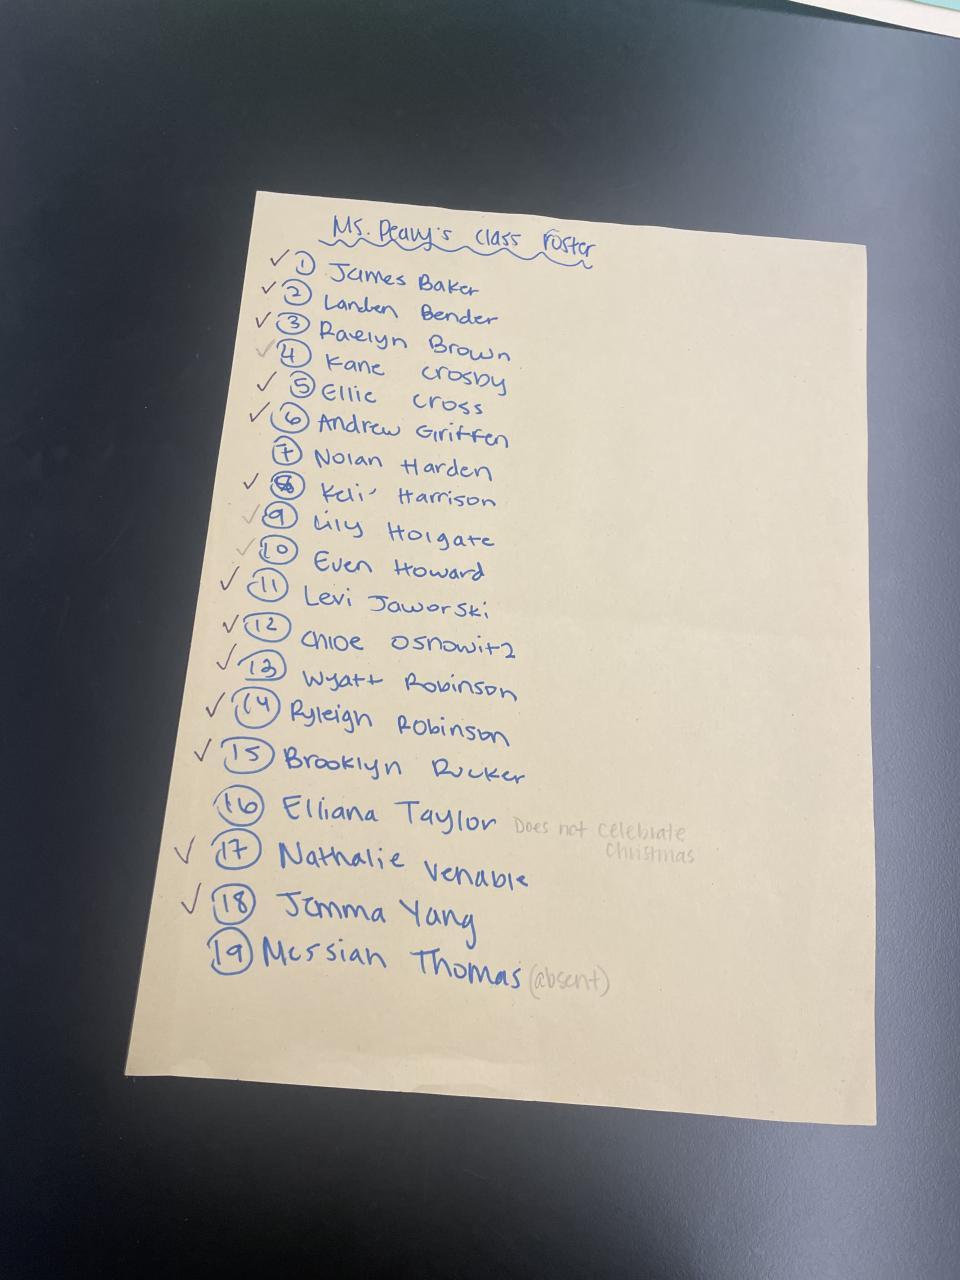 Ms. Peavy's class roster
✓ 1 James Baker
✓ 2 Landen Bender
✓ 3 Raelyn Brown
✓ 4 Kane Crosby
✓ 5 Ellie Cross
✓ 6 Andrew Griffen
7 Nolan Harden
✓ 8 Keli Harrison
✓ 9 Lily Holgate
✓ 10 Even Howard
✓ 11 Levi Jaworski
✓ 12 Chloe Osnowitz
✓ 13 Wyatt Robinson
✓ 14 Ryleigh Robinson
✓ 15 Brooklyn Rucker
16 Elliana Taylor Does not celebrate
Christmas
✓ 17 Nathalie Venable
✓ 18 Jemma Yang
19 Messiah Thomas (absent)